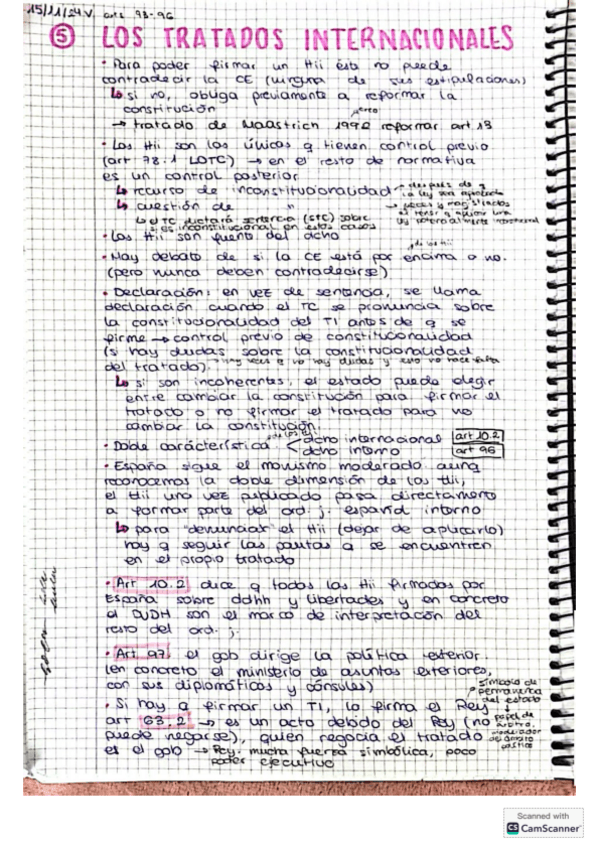 15/11/24 V arts 93-96
5 LOS TRATADOS INTERNACIONALES
· Para poder firmar un ttii éste no puede
contradecir la CE (ninguna de sus estipulaciones)
↳ si no, obliga previamente a reformar la
constitución
→ tratado de Maastrich 1992 reformar art 13
· Los ttii son los únicos q tienen control previo
(art 78.1 LOTC) → en el resto de normativa
es un control posterior
↳ recurso de inconstitucionalidad → después de q
la ley sea aprobada
↳ cuestión de " → jueces y magistrados
↳ el TC dictará sentencia (STC) sobre
si es inconstitucional en estos casos
· Los ttii son fuente del dcho
de los ttii
· Hay debate de si la CE está por encima o no.
(pero nunca deben contradecirse)
· Declaración: en vez de sentencia, se llama
declaración cuando el TC se pronuncia sobre
la constitucionalidad del TI antes de q se
firme → control previo de constitucionalidad
(si hay dudas sobre la constitucionalidad
del tratado). → hay veces q no hay dudas y esto no hace falta
↳ si son incoherentes, el estado puede elegir
entre cambiar la constitución para firmar el
tratado o no firmar el tratado para no
cambiar la constitución.
de los ttii
· Doble carácterística < dcho internacional art 10.2
dcho interno art 96
· España sigue el monismo moderado aunq
reconocemos la doble dimensión de los ttii,
el ttii una vez publicado pasa directamente
a formar parte del ord. j. español interno
↳ para "denunciar" el ttii (dejar de aplicarlo)
hay q seguir las pautas q se encuentren
en el propio tratado
· Art 10.2 dice q todos los ttii firmados por
España sobre ddhh y libertades y en concreto
la DUDH son el marco de interpretación del
resto del ord. j.
· Art 97 el gob dirige la política exterior.
(en concreto el ministerio de asuntos exteriores,
con sus diplomáticos y cónsules)
símbolo de
permanencia
del estado
· Si hay q firmar un TI, lo firma el Rey
art 63.2 → es un acto debido del Rey (no
puede negarse), quien negocia el tratado
papel de
árbitro,
moderador
es el gob → Rey: mucha fuerza simbólica, poco
poder ejecutivo
Scanned with
CS CamScanner